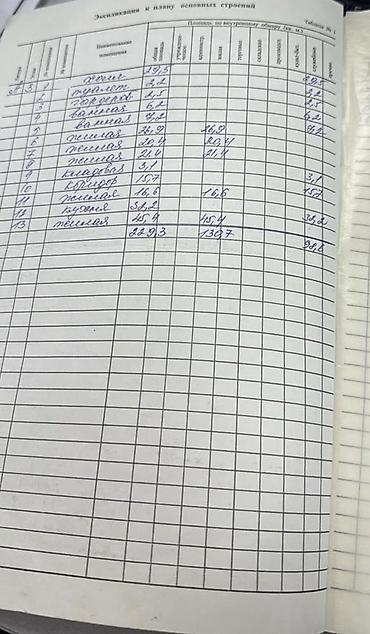 Экспликация к плану основных строений
Таблица № 1
Площадь по внутреннему обмеру (кв. м.)
Литера Этаж № помещения Наименование помещения общая площадь жилая торговая складская прочие
А 3 1 холл 29,3 29,3
2 туалет 2,2 2,2
3 гардероб 2,5 2,5
4 ванная 6,2 6,2
5 ванная 9,2 9,2
6 жилая 26,9 26,9
7 жилая 20,4 20,4
8 жилая 21,4 21,4
9 кладовая 3,1 3,1
10 коридор 15,7 15,7
11 жилая 16,6 16,6
12 кухня 32,2 32,2
13 жилая 45,4 45,4
229,3 130,7 98,6